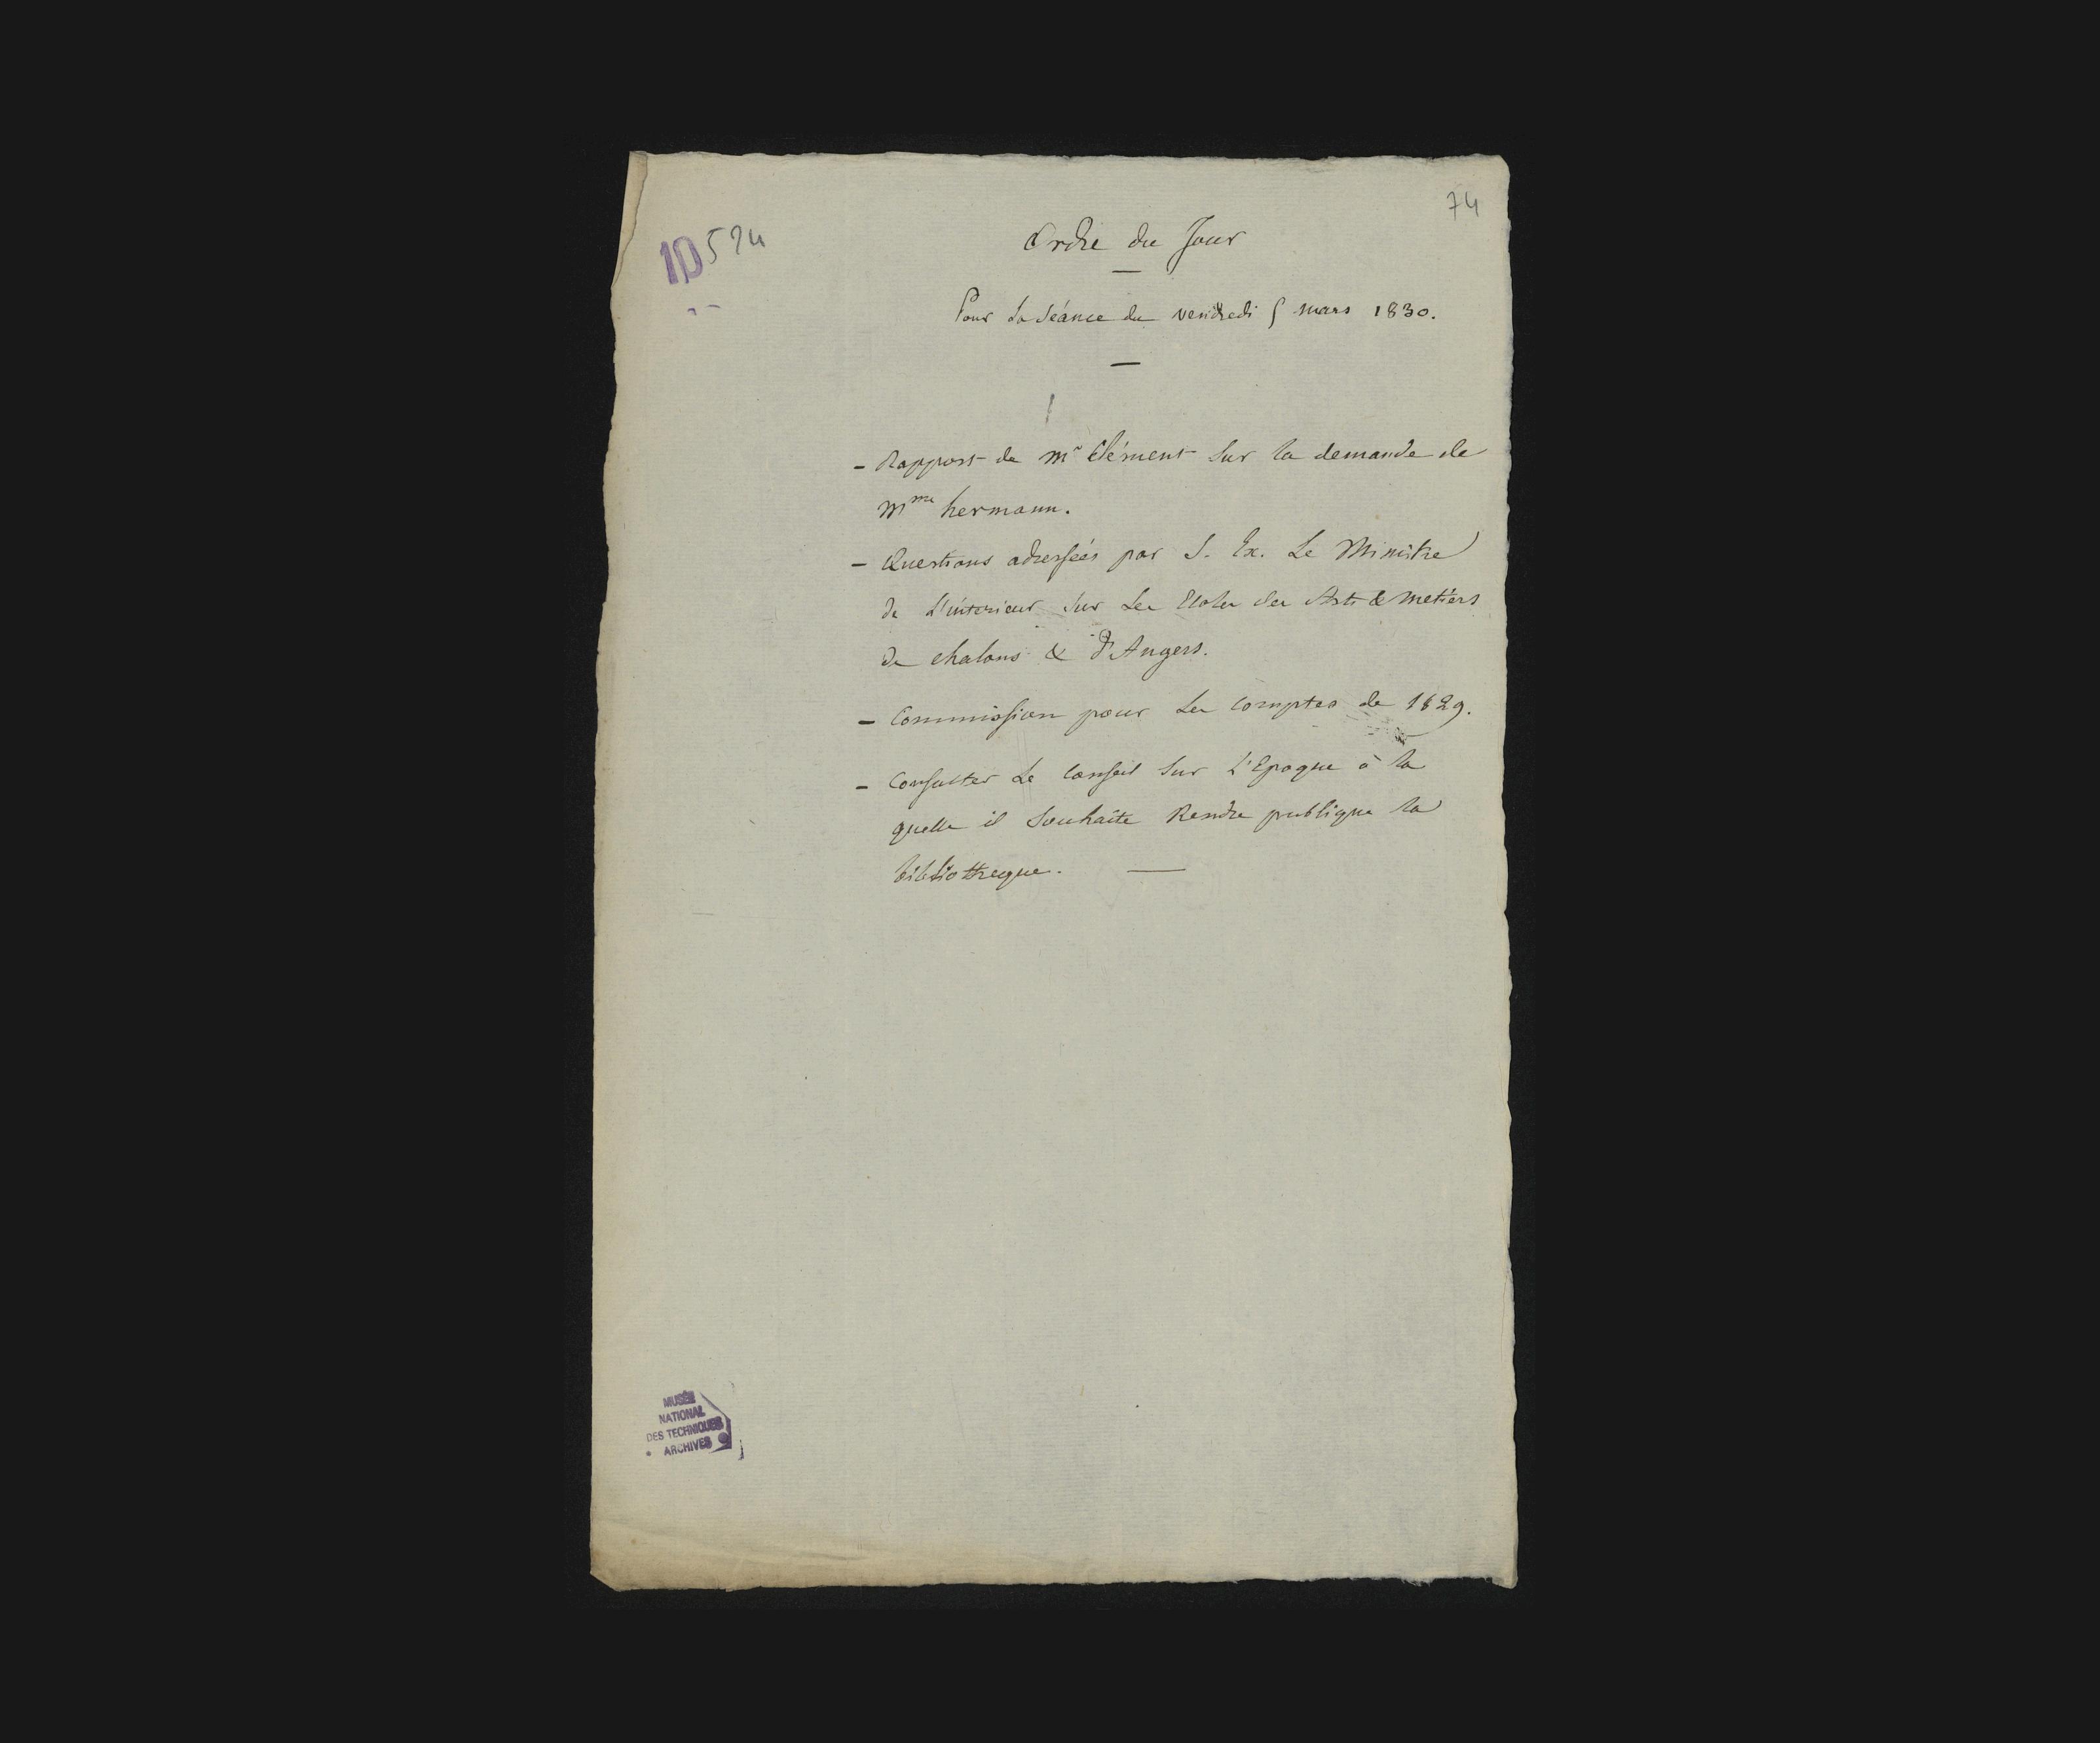 74
10 574
Ordre du Jour
Pour la Séance du vendredi 5 mars 1830.
- Rapport de Mr Clément sur la demande de
Mme hermann.
- Questions adressées par S. Ex. Le Ministre
de L'intérieur sur Les Ecoles des Arts & metiers
de chalons & d'Angers.
- Commission pour Les Comptes de 1829.
- Consulter Le Conseil sur L'Epoque à la
quelle il Souhaite Rendre publique la
bibliotheque.
MUSÉE
NATIONAL
DES TECHNIQUES
ARCHIVES